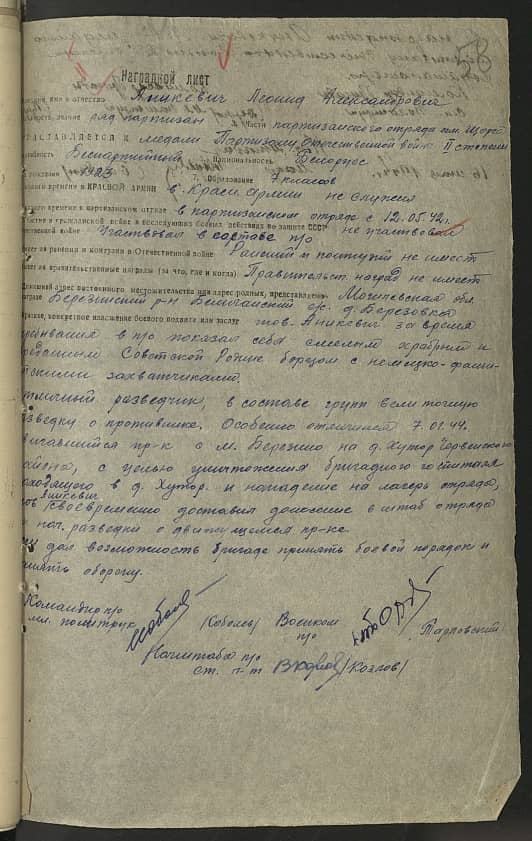 58
Наградной лист
имя и отчество Аникевич Леонид Александрович
звание ряд. партизан Части партизанского отряда им. Щорса
ПРЕДСТАВЛЯЕТСЯ к медали Партизану Отечественной войны II степени
Беспартийный Национальность Белорус
рождения 1923 Образование 7 классов
времени в КРАСНОЙ АРМИИ в Красн. Армии не служил
времени в партизанском отряде в партизанском отряде с 12.05.42 г.
участие в гражданской войне и последующих боевых действиях по защите СССР не участвовал
войне Участвовал в составе п/о
ранения и контузии в Отечественной войне Ранений и контузий не имеет
правительственные награды (за что, где и когда) Правительст. наград не имеет
адрес постоянного местожительства или адрес родных представляемого Могилевская обл.
Березинский р-н с/с. д. Березовка
конкретное изложение боевого подвига или заслуг тов. Аникевич за время
пребывания в п/о показал себя смелым храбрым и
преданным Советской Родине борцом с немецко-фашистскими захватчиками.
отличный разведчик, в составе групп вели точную
разведку о противнике. Особенно отличился 7.01.44.
пр-к с м. Березино на д. Хутор Червенского
района, с целью уничтожения бригадного госпиталя
находящего в д. Хутор. и нападение на лагерь отряда,
тов Аникевич своевременно доставил донесение в штаб отряда
разведки о движущемся пр-ке.
дал возможность бригаде принять боевой порядок и
занять оборону.
Командир п/о
мл. политрук /Кобель/ Военком
п/о /Тарловский
Начштаба п/о
ст. л-т /Козлов/